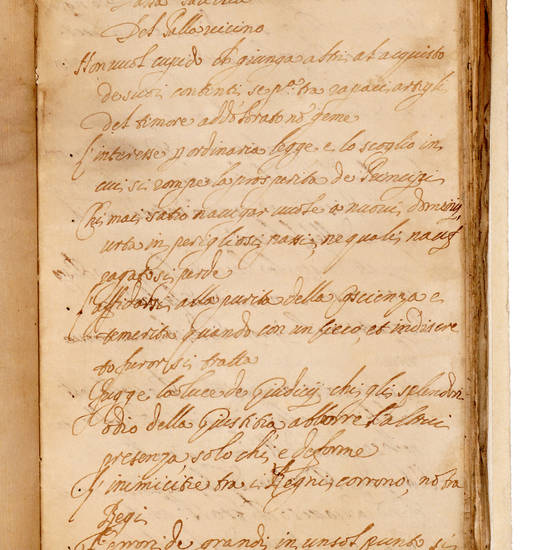 Dalla
Del Pallavicino
Non vuol cupido ch giunga altri at acquisto
de suoi contenti, se p.a tra rapaci artigli
Del timore addolorato nõ geme
L'interesse p ordinaria legge e lo scoglio in
cui si rompe la prosperita de Principi
Chi mai satio navigar vuole a nuovi dominij,
urta in perigliosi sassi, ne quali nauf
ragato si perde
L'affidarsi alla purita della cõscienza e
temerita quando con un cieco, et indiscre
to furor si tratta
Fugge la luce de Giudicij chi gli splendori
odio della Giustitia abborre l'altrui
presenza solo chi e deforme
L'inimicitie tra i Regni corrono, nõ tra
Regi
errori de grandi in un sol punto si